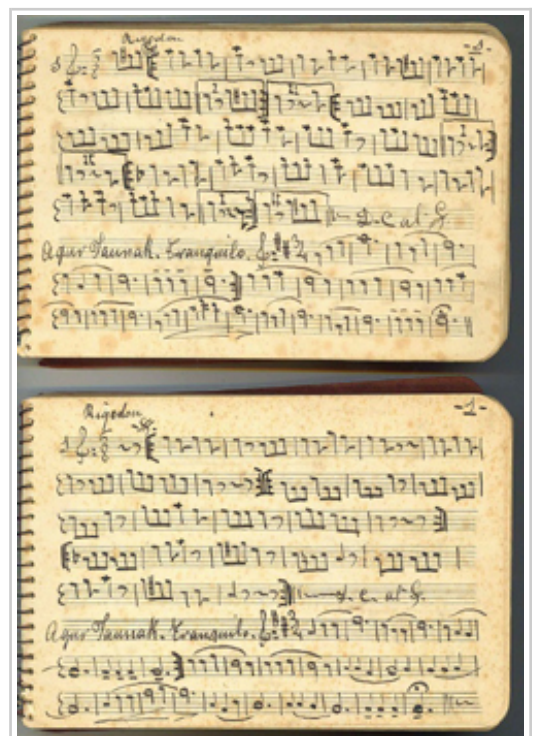 Rigodon
-1-
1
I
II
I
II
I
II
D.C. al S.
Agur Jaunak. Tranquilo.
Rigodon
-1-
1
D.C. al S.
Agur Jaunak. Tranquilo.